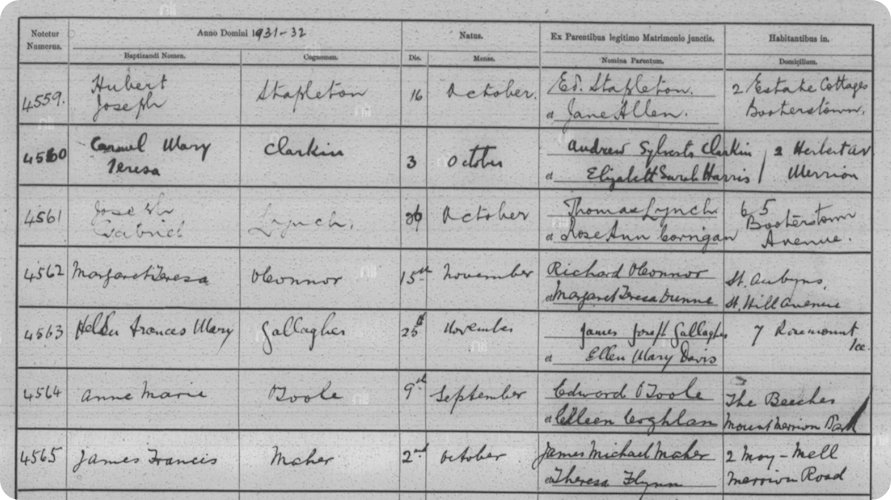 Notetur Numerus.
Anno Domini 1931-32
Natus.
Ex Parentibus legitimo Matrimonio junctis.
Habitantibus in.
Baptizandi Nomen.
Cognomen.
Die.
Mense.
Nomina Parentum.
Domicilium.
4559. Hubert Stapleton 16 October. Ed. Stapleton. 2 Estate Cottages
Joseph et Jane Allen. Booterstown.
4560 Carmel Mary Clarkin 3 October Andrew Sylvester Clarkin 2 Herbert Av
Teresa et Elizabeth Sarah Harris Merrion
4561 Joseph Lynch. 26 October Thomas Lynch 65
Gabriel et Rose Ann Corrigan Booterstown
Avenue.
4562 Margaret Teresa OConnor 15th November Richard OConnor St. Aubyns,
et Margaret Teresa Dunne St. Hill Avenue
4563 Helen Frances Mary Gallagher 25th November James Joseph Gallagher 7 Rosemount
et Ellen Mary Davis Tce.
4564 Anne Marie OToole 9th September Edward OToole The Beeches
et Eileen Coghlan Mount Merrion Park
4565 James Francis Maher 2nd October James Michael Maher 2 Moy-Mell
et Theresa Flynn Merrion Road